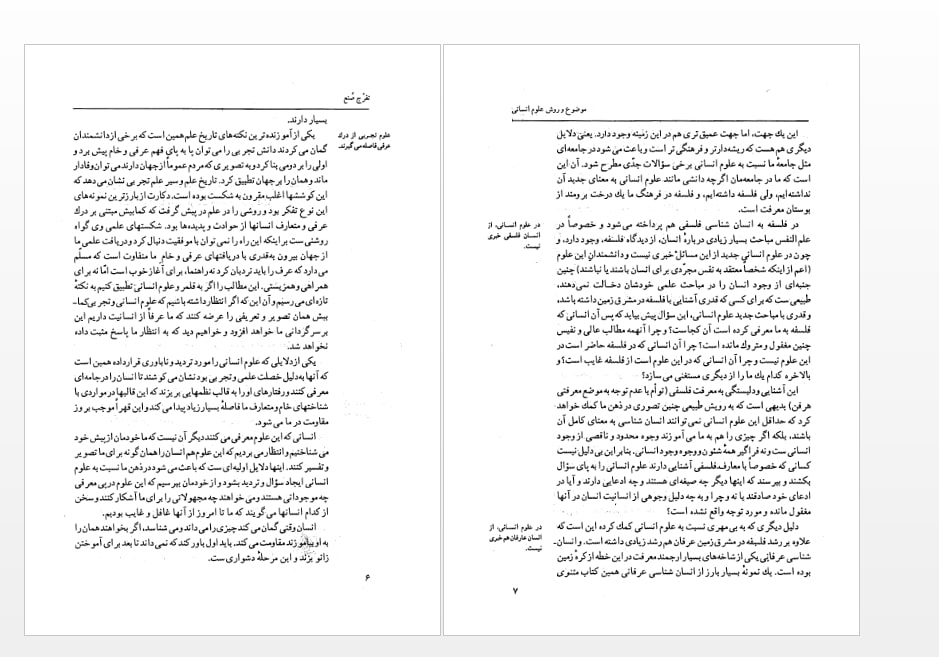 تفرّج صُنع
علوم تجربی از درک
عرفی فاصله می‌گیرند.
بسیار دارند.
یکی از آموزنده‌ترین نکته‌های تاریخ علم همین است که برخی از دانشمندان
گمان می‌کردند دانش تجربی را می‌توان پا به پای فهم عرفی و خام پیش برد و
اولی را بر دومی بنا کرد و به تصویری که مردم عموماً از جهان دارند می‌توان وفادار
ماند و همان را بر جهان تطبیق کرد. تاریخ علم و سیر علم تجربی نشان می‌دهد که
این کوششها اغلب مقرون به شکست بوده است. دکارت از بارزترین نمونه‌های
این نوع تفکر بود و روشی را در علم در پیش گرفت که کمابیش مبتنی بر درک
عرفی و متعارف انسانها از حوادث و پدیده‌ها بود. شکستهای علمی وی گواه
روشنی‌ست بر اینکه این راه را نمی‌توان با موفقیت دنبال کرد و دریافت علمی ما
از جهان بیرون به‌قدری با دریافتهای عرفی و خام ما متفاوت است که مسلّم
می‌دارد که عرف را باید نردبان کرد نه راهنما، برای آغاز خوب است امّا نه برای
همراهی و همزیستی. این مطالب را اگر به قلمر و علوم انسانی تطبیق کنیم به نکتهٔ
تازه‌ای می‌رسیم و آن این که اگر انتظار داشته باشیم که علوم انسانی و تجربی کما-
بیش همان تصویر و تعریفی را عرضه کنند که ما عرفاً از انسانیت داریم این
بر سرگردانی ما خواهد افزود و خواهیم دید که به انتظار ما پاسخ مثبت داده
نخواهد شد.
یکی از دلایلی که علوم انسانی را مورد تردید و ناباوری قرار داده همین است
که آنها به‌دلیل خصلت علمی و تجربی بودنشان می‌کوشند تا انسان را در جامه‌ای
معرفی کنند و رفتارهای او را به قالب نظمهایی بریزند که این قالبها در مواردی با
شناختهای خام و متعارف ما فاصلهٔ بسیار زیاد پیدا می‌کند و این قهراً موجب بروز
مقاومت در ما می‌شود.
انسانی که این علوم معرفی می‌کنند دیگر آن نیست که ما خودمان از پیش خود
می‌شناختیم و انتظار می‌بردیم که این علوم هم انسان را همان گونه برای ما تصویر
و تفسیر کنند. اینها دلایل اولیه‌ای ست که باعث می‌شود در ذهن ما نسبت به علوم
انسانی ایجاد سؤال و تردید بشود و از خودمان بپرسیم که این علوم در پی معرفی
چه موجوداتی هستند و می‌خواهند چه مجهولاتی را برای ما آشکار کنند و سخن
از کدام انسانها می‌گویند که ما تا امروز از آنها غافل و غایب بودیم.
انسان وقتی گمان می‌کند چیزی را می‌داند و می‌شناسد، اگر بخواهند همان را
به او بیاموزند مقاومت می‌کند. باید اول باور کند که نمی‌داند تا بعد برای آموختن
زانو بزند و این مرحلهٔ دشواری ست.
۶
موضوع و روش علوم انسانی
این یك جهت، اما جهت عمیق‌تری هم در این زمینه وجود دارد. یعنی دلایل
دیگری هم هست که ریشه‌دارتر و فرهنگی‌تر است و باعث می‌شود در جامعه‌ای
مثل جامعهٔ ما نسبت به علوم انسانی برخی سؤالات جدّی مطرح شود. آن این
است که ما در جامعه‌مان اگرچه دانشی مانند علوم انسانی به معنای جدید آن
نداشته‌ایم، ولی فلسفه داشته‌ایم، و فلسفه در فرهنگ ما یك درخت برومند از
بوستان معرفت است.
در فلسفه به انسان شناسی فلسفی هم پرداخته می‌شود و خصوصاً در
علم النفس مباحث بسیار زیادی دربارهٔ انسان، از دیدگاه فلسفه، وجود دارد، و
چون در علوم انسانی جدید از این مسائل خبری نیست و دانشمندان این علوم
(اعم از اینکه شخصاً معتقد به نفس مجرّدی برای انسان باشند یا نباشند) چنین
جنبه‌ای از وجود انسان را در مباحث علمی خودشان دخالت نمی‌دهند،
طبیعی‌ست که برای کسی که قدری آشنایی با فلسفه در مشرق زمین داشته باشد،
و قدری با مباحث جدید علوم انسانی، این سؤال پیش بیاید که پس آن انسانی که
فلسفه به ما معرفی کرده است آن کجاست؟ و چرا آنهمه مطالب عالی و نفیس
چنین مغفول و متروك مانده است؟ چرا آن انسانی که در فلسفه حاضر است در
این علوم نیست و چرا آن انسانی که در این علوم است از فلسفه غایب است؟ و
بالاخره کدام یك ما را از دیگری مستغنی می‌سازد؟
این آشنایی و دلبستگی به معرفت فلسفی (توأم با عدم توجه به موضع معرفتی
هر فن) بدیهی است که به رویش طبیعی چنین تصوری در ذهن ما کمك خواهد
کرد که حداقل این علوم انسانی نمی‌توانند انسان شناسی به معنای کامل آن
باشند، بلکه اگر چیزی را هم به ما می‌آموزند وجوه محدود و ناقصی از وجود
انسانی ست و نه فراگیر همهٔ شئون و وجوه وجود انسانی. بنابراین بی دلیل نیست
کسانی که خصوصاً با معارف فلسفی آشنایی دارند علوم انسانی را به پای سؤال
بکشند و بپرسند که اینها دیگر چه صیغه‌ای هستند و چه ادعایی دارند و آیا در
ادعای خود صادقند یا نه و چرا و به چه دلیل وجوهی از انسانیت انسان در آنها
مغفول مانده و مورد توجه واقع نشده است؟
دلیل دیگری که به بی‌مهری نسبت به علوم انسانی کمك کرده این است که
علاوه بر رشد فلسفه در مشرق زمین عرفان هم رشد زیادی داشته است. و انسان-
شناسی عرفانی یکی از شاخه‌های بسیار ارجمند معرفت در این خطه از کرهٔ زمین
بوده است. یك نمونهٔ بسیار بارز از انسان شناسی عرفانی همین کتاب مثنوی
در علوم انسانی، از
انسان فلسفی خبری
نیست.
در علوم انسانی، از
انسان عارفان هم خبری
نیست.
۷